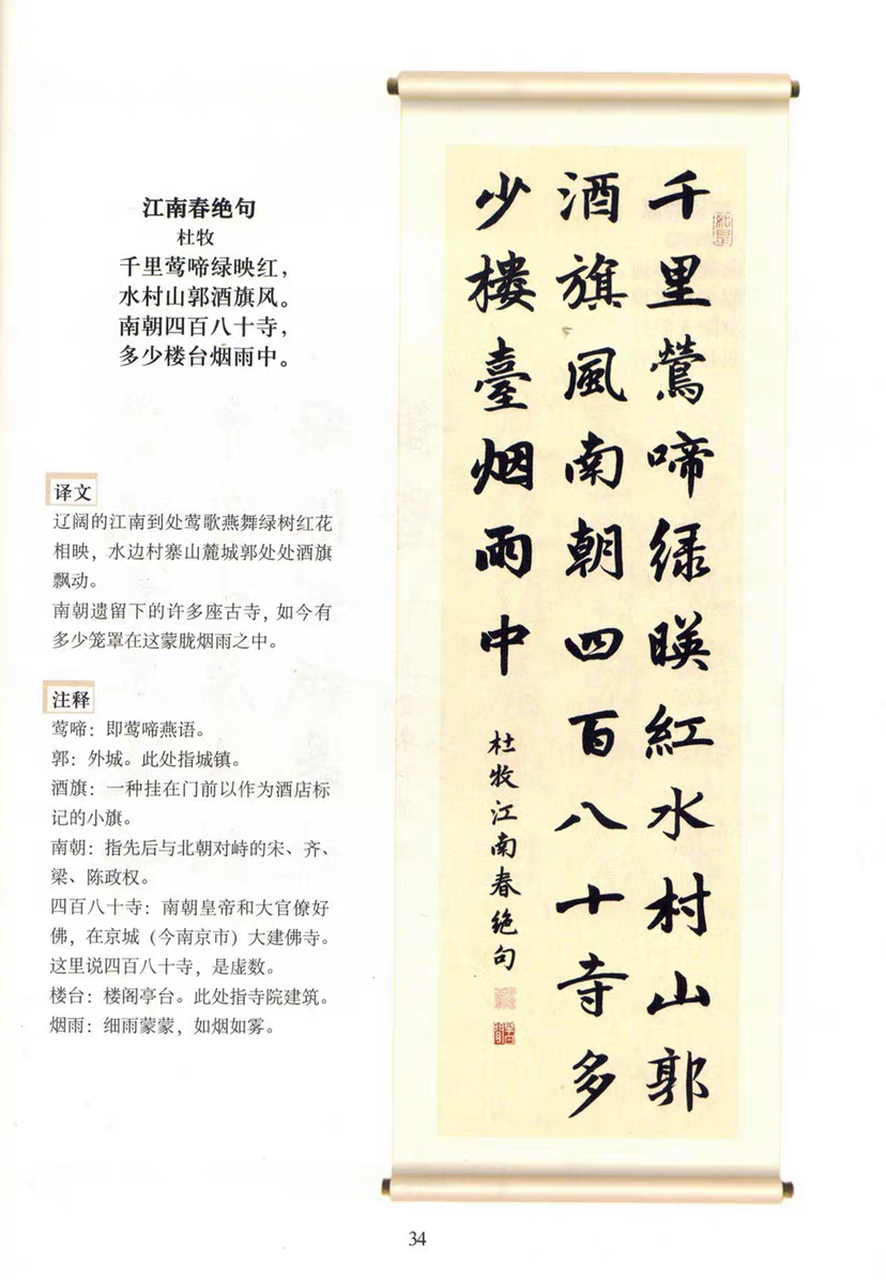 江南春绝句
杜牧
千里莺啼绿映红，
水村山郭酒旗风。
南朝四百八十寺，
多少楼台烟雨中。
译文
辽阔的江南到处莺歌燕舞绿树红花
相映，水边村寨山麓城郭处处酒旗
飘动。
南朝遗留下的许多座古寺，如今有
多少笼罩在这蒙胧烟雨之中。
注释
莺啼：即莺啼燕语。
郭：外城。此处指城镇。
酒旗：一种挂在门前以作为酒店标
记的小旗。
南朝：指先后与北朝对峙的宋、齐、
梁、陈政权。
四百八十寺：南朝皇帝和大官僚好
佛，在京城（今南京市）大建佛寺。
这里说四百八十寺，是虚数。
楼台：楼阁亭台。此处指寺院建筑。
烟雨：细雨蒙蒙，如烟如雾。
千里鶯啼绿暎紅水村山郭
酒旗風南朝四百八十寺多
少楼臺烟雨中
杜牧江南春绝句
34